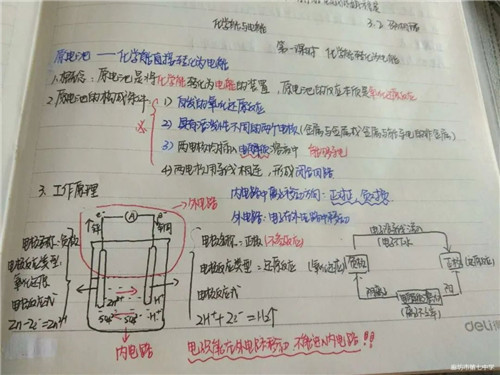 化学能与电能
第一课时 化学能转化为电能
原电池——化学能直接转化为电能
1.概念：原电池是将化学能转化为电能的装置，原电池的反应本质是氧化还原反应
2.原电池的构成条件
1) 自发的氧化还原反应
2) 具有活泼性不同的两个电极（金属与金属或金属与能导电的非金属）
3) 两电极均插入电解质溶液中
4) 两电极用导线相连，形成闭合回路
3.工作原理
外电路
内电路中离子移动方向：正→正，负→负
外电路：电子在外电路中移动
A
电极名称：负极
电极反应类型：氧化反应
电极反应式
Zn-2e⁻=Zn²⁺
Zn²⁺
H⁺
SO₄²⁻
SO₄²⁻
H⁺
内电路
电极名称：正极
电极反应类型：还原反应
电极反应式
2H⁺+2e⁻=H₂↑
负极
正极
电子只能在外电路移动 不能进入内电路!!
deli
廊坊市第七中学